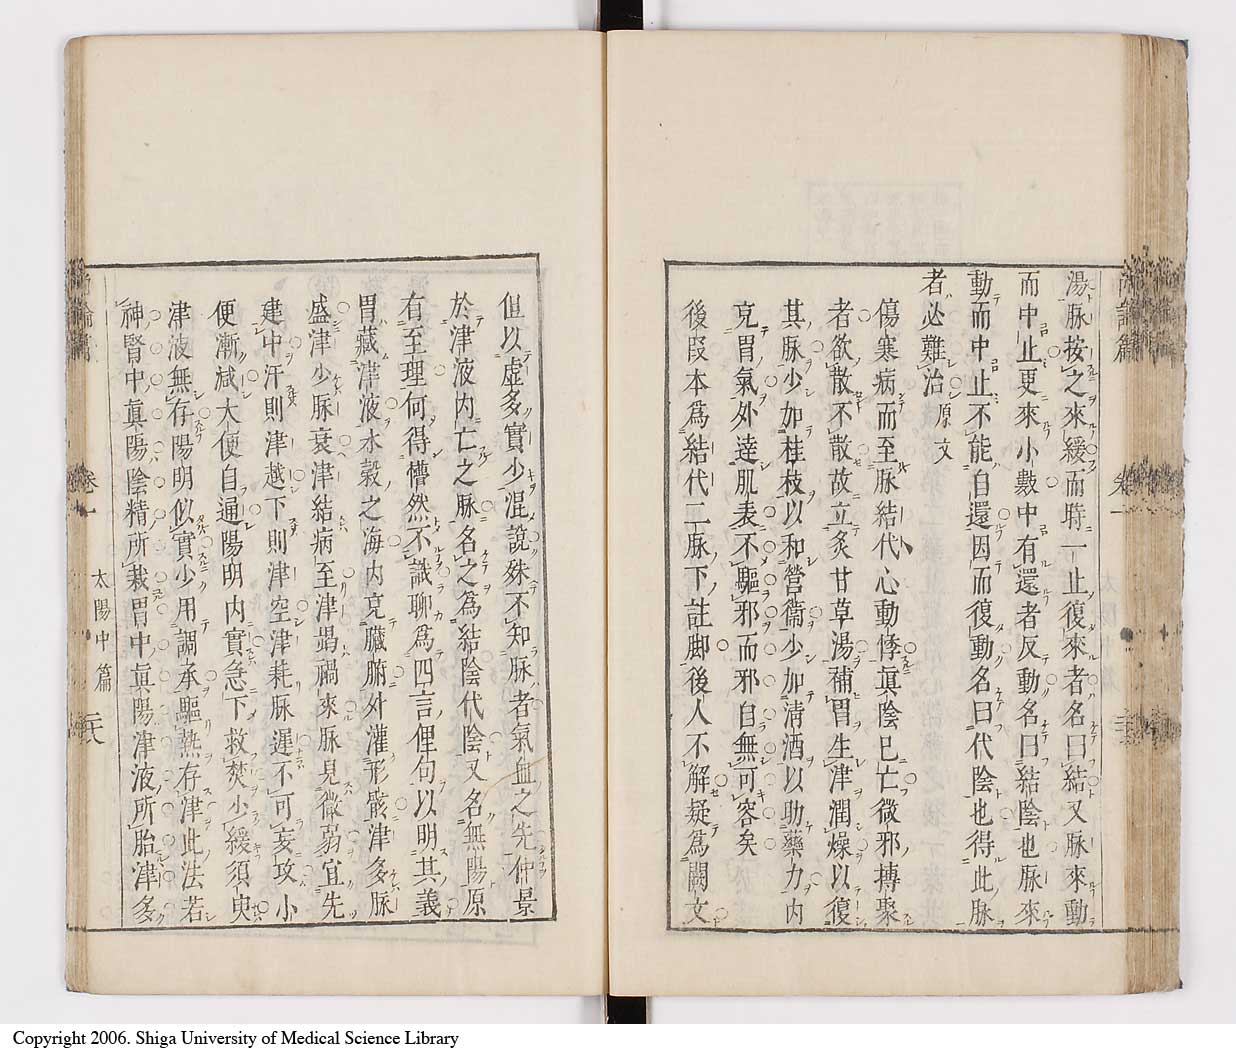 湯脉按之來緩而時一止復來者名曰結又脉來動
而中止更來小數中有還者反動名曰結陰也脉來
動而中止不能自還因而復動名曰代陰也得此脉
者必難治原文
傷寒病而至脉結代心動悸眞陰已亡微邪搏聚
者欲散不散故立炙甘草湯補胃生津潤燥以復
其脉少加桂枝以和營衞少加清酒以助藥力内
充胃氣外達肌表不驅邪而邪自無可容矣
後叚本爲結代二脉下註脚後人不解疑爲闕文
但以虛多實少混說殊不知脉者氣血之先仲景
於津液内亡之脉名之爲結陰代陰又名無陽原
有至理何得懵然不識聊爲四言俚句以明其義
胃藏津液水榖之海内充臟腑外灌形骸津多脉
盛津少脉衰津結病至津竭禍來脉見微弱宜先
建中汗則津越下則津空津耗脉遲不可妄攻小
便漸减大便自通陽明内實急下救焚少緩須臾
津液無存陽明似實少用調承驅熱存津此法若
神腎中眞陽陰精所栽胃中眞陽津液所胎津多
卷一
太陽中篇
Copyright 2006. Shiga University of Medical Science Library